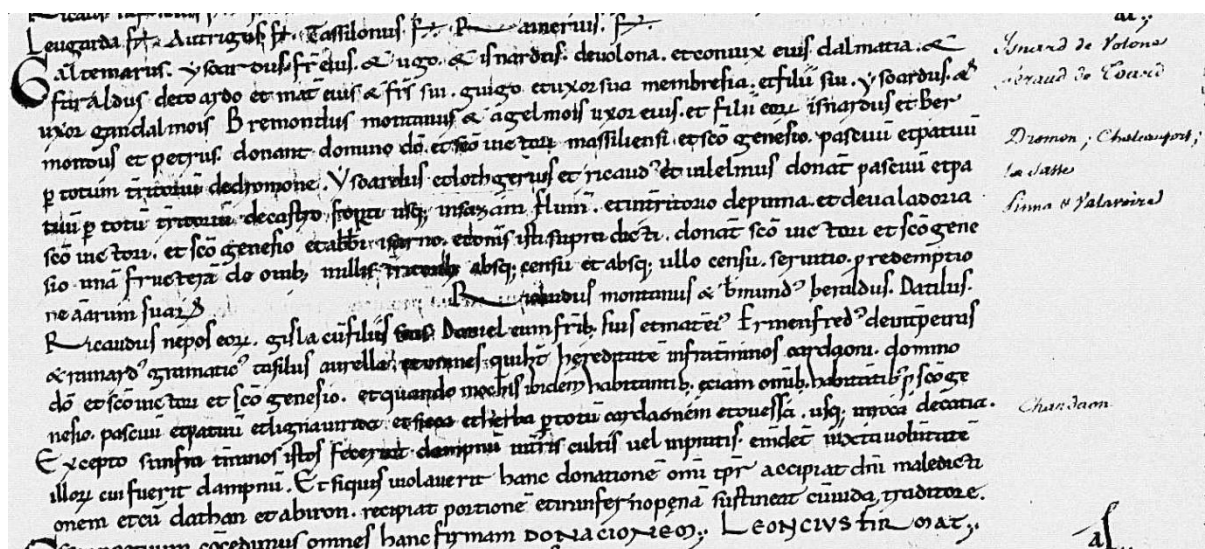 Leugarda fr̄. Autrigus fr̄. Tassilonus fr̄. Rainerius. fr̄.
al;,
Galtemarus. ysoardus. freius. & ugo. & isnardus. devolona. et coniux eius dalmatia. &
Isnard de Volone
firaldus decoardo et mat̄ eius & fr̄s sui. guigo et uxor sua membresia. et filii sui. ysoardus. &
Géraud de Toard
uxor gandalmois Bremondus montanus & agelmois uxor eius. et filii eoꝝ isnardus et ber
mondus et petrus. donant domino dō. et sc̄o uictori massiliensi. et sc̄o genesio. pascuū et patuū
Dromon; Chateaufort;
ꝑ totum t̄ritoriū dedromone. Ysoardus et lothgerius et ricaud᾽ et uulelmus donāt pascuū et pa
la Sasse
tuū ꝑ totū t̄ritoriū decastro forti usq; insaxam flum̄. et int̄ritorio depinna. et devaladoria
Pinna et Valavoire
sc̄o uictori. et sc̄o genesio et abb̄i isarno. et om̄s isti supra dicti. donāt sc̄o uictori et sc̄o gene
sio unā fructerā de omib; uillis absq; censu et absq; ullo censu. seruitio. ꝓ redemptio
ne āarum suarꝝ Ricaudus montanus & b̄mund᾽ beraldus. Datilus.
Ricaudus nepos eoꝝ. gisla cū filiis suis. Daniel cum fr̄ib; suis et mat̄ ei᾽ Ermenfred᾽ petrus
& rainard᾽ gramatic᾽ tasilus aurella; et omnes qui hn̄t hereditatē infra t̄minos cardaoni. domino
dō et sc̄o uictori et sc̄o genesio. et quando monachis ibidem habitantib; eciam omib; habitātib; ꝑ sc̄o ge
nesio. pascuū et patuū et ligna et herba ꝑ totū cardaonem et ouessā. usq; decatia.
Chandaon
Excepto si infra t̄minos istos fecerint dampnū in t̄ris cultis vel inpratis. emdet̄ iuxta uolūtatē
illoꝝ cui fuerit dampnū. Et siquis uiolauerit hanc donationē omī tp̄r accipiat dn̄i maledicti
onem et cū dathan et abiron. recipiat portionē et in inferno penā sustineat cū iuda, traditore.
cōcedimus omnes hanc firmam DONACIONEM;, LEONCIUS FIRMAT;,
al;,